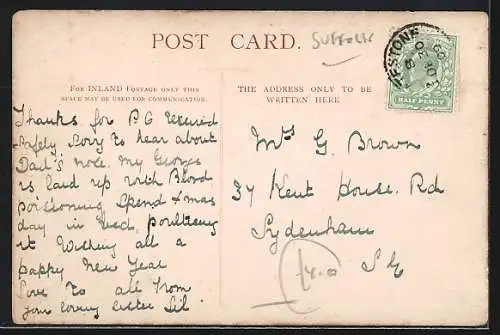 POST CARD.
SUFFOLK
FOR INLAND POSTAGE ONLY THIS
SPACE MAY BE USED FOR COMMUNICATION.
THE ADDRESS ONLY TO BE
WRITTEN HERE
HALF PENNY
Thanks for P.C received
safely sorry to hear about
Dad's My George
is laid up with Blood
poisioning spend Xmas
day in bed, poulticing
it Wishing all a
happy New Year
Love to all from
your loving sister Sil
Mrs G Brown
37 Kent House Rd
Sydenham
S E